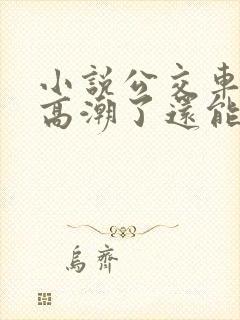 小說公交車
高潮了還能
烏齊